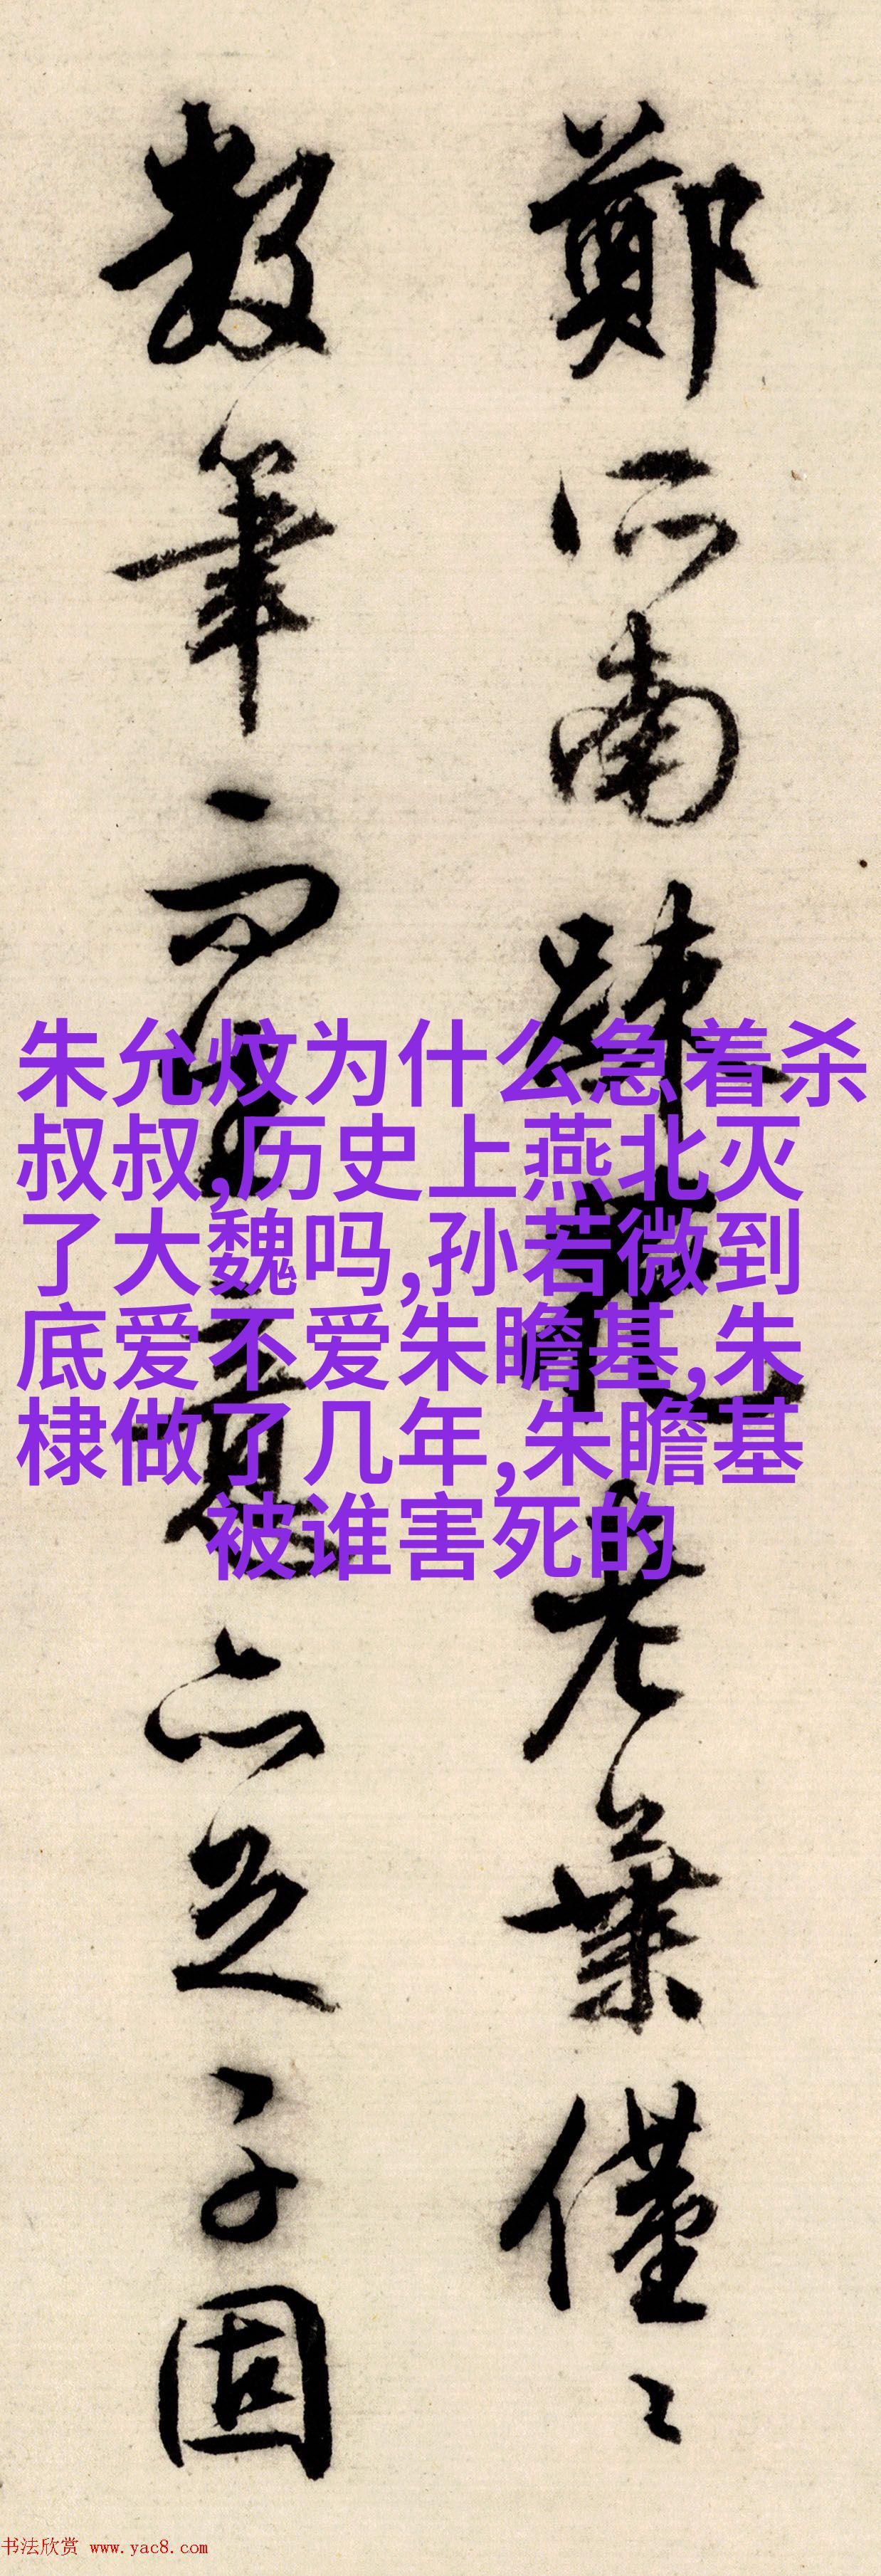 鄭所南疎花老葉僅〻
數筆而
意亦足子固
朱允炆为什么急着杀
叔叔,历史上燕北灭
了大魏吗,孙若微到
底爱不爱朱瞻基,朱
棣做了几年,朱瞻基
被谁害死的
书法欣赏 www.yac8.com